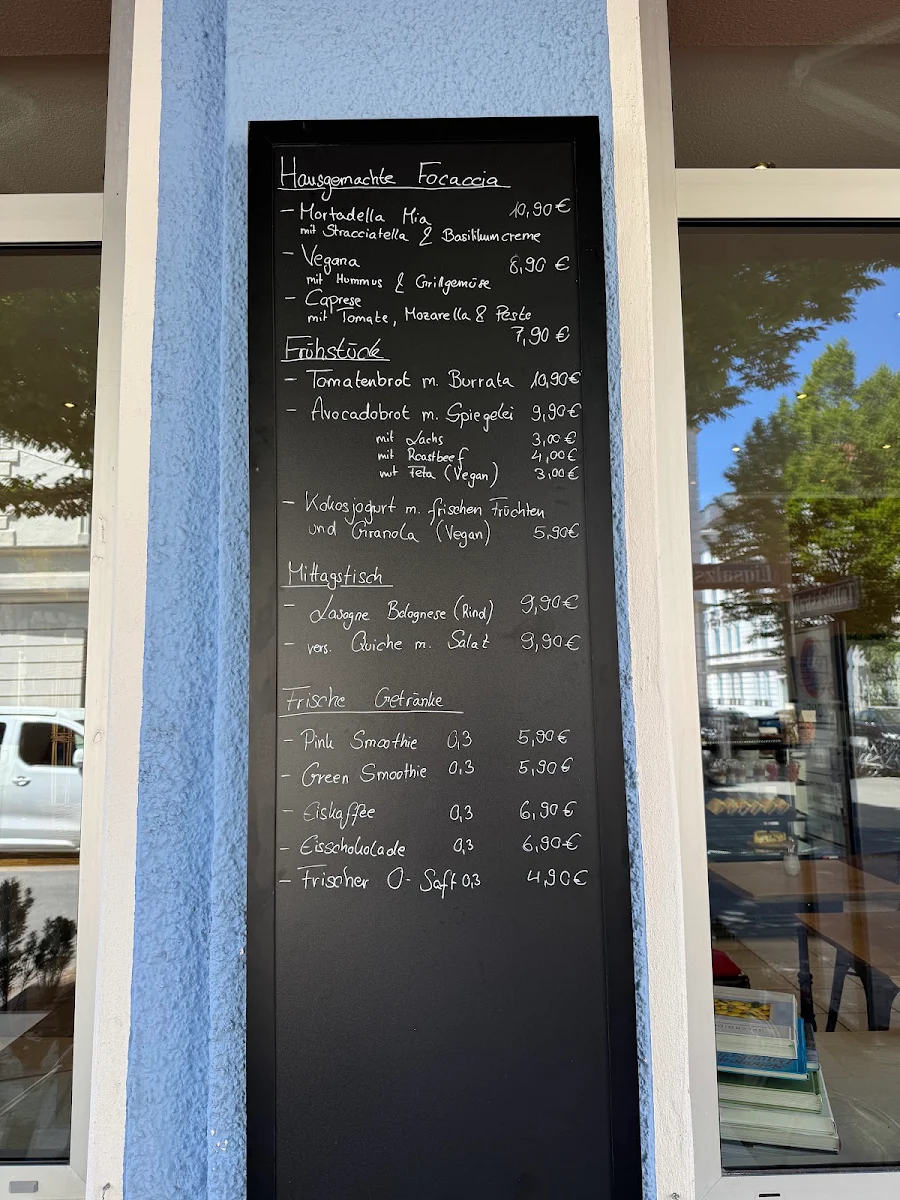 Hausgemachte Focaccia
- Mortadella Mia 10,90€
mit Stracciatella & Basilikumcreme
- Vegana 8,90 €
mit Hummus & Grillgemüse
- Caprese
mit Tomate, Mozarella & Pesto
7,90 €
Frühstück
- Tomatenbrot m. Burrata 10,90€
- Avocadobrot m. Spiegelei 9,90€
mit Lachs 3,00 €
mit Roastbeef 4,00€
mit Feta (Vegan) 3,00€
- Kokosjogurt m. frischen Früchten
und Granola (Vegan) 5,90€
Mittagstisch
- Lasagne Bolognese (Rind) 9,90€
- vers. Quiche m. Salat 9,90€
Frische Getränke
- Pink Smoothie 0,3 5,90€
- Green Smoothie 0,3 5,90€
- Eiskaffee 0,3 6,90€
- Eisschokolade 0,3 6,90€
- Frischer O-Saft 0,3 4,90€